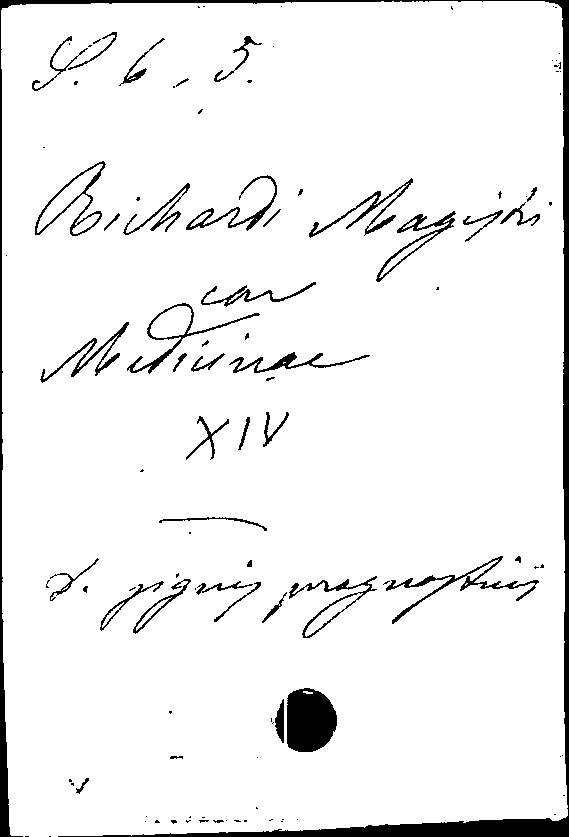 S. 6, 5.
Richardi Magistri
Medicinae
XIV
D. signis prognosticis